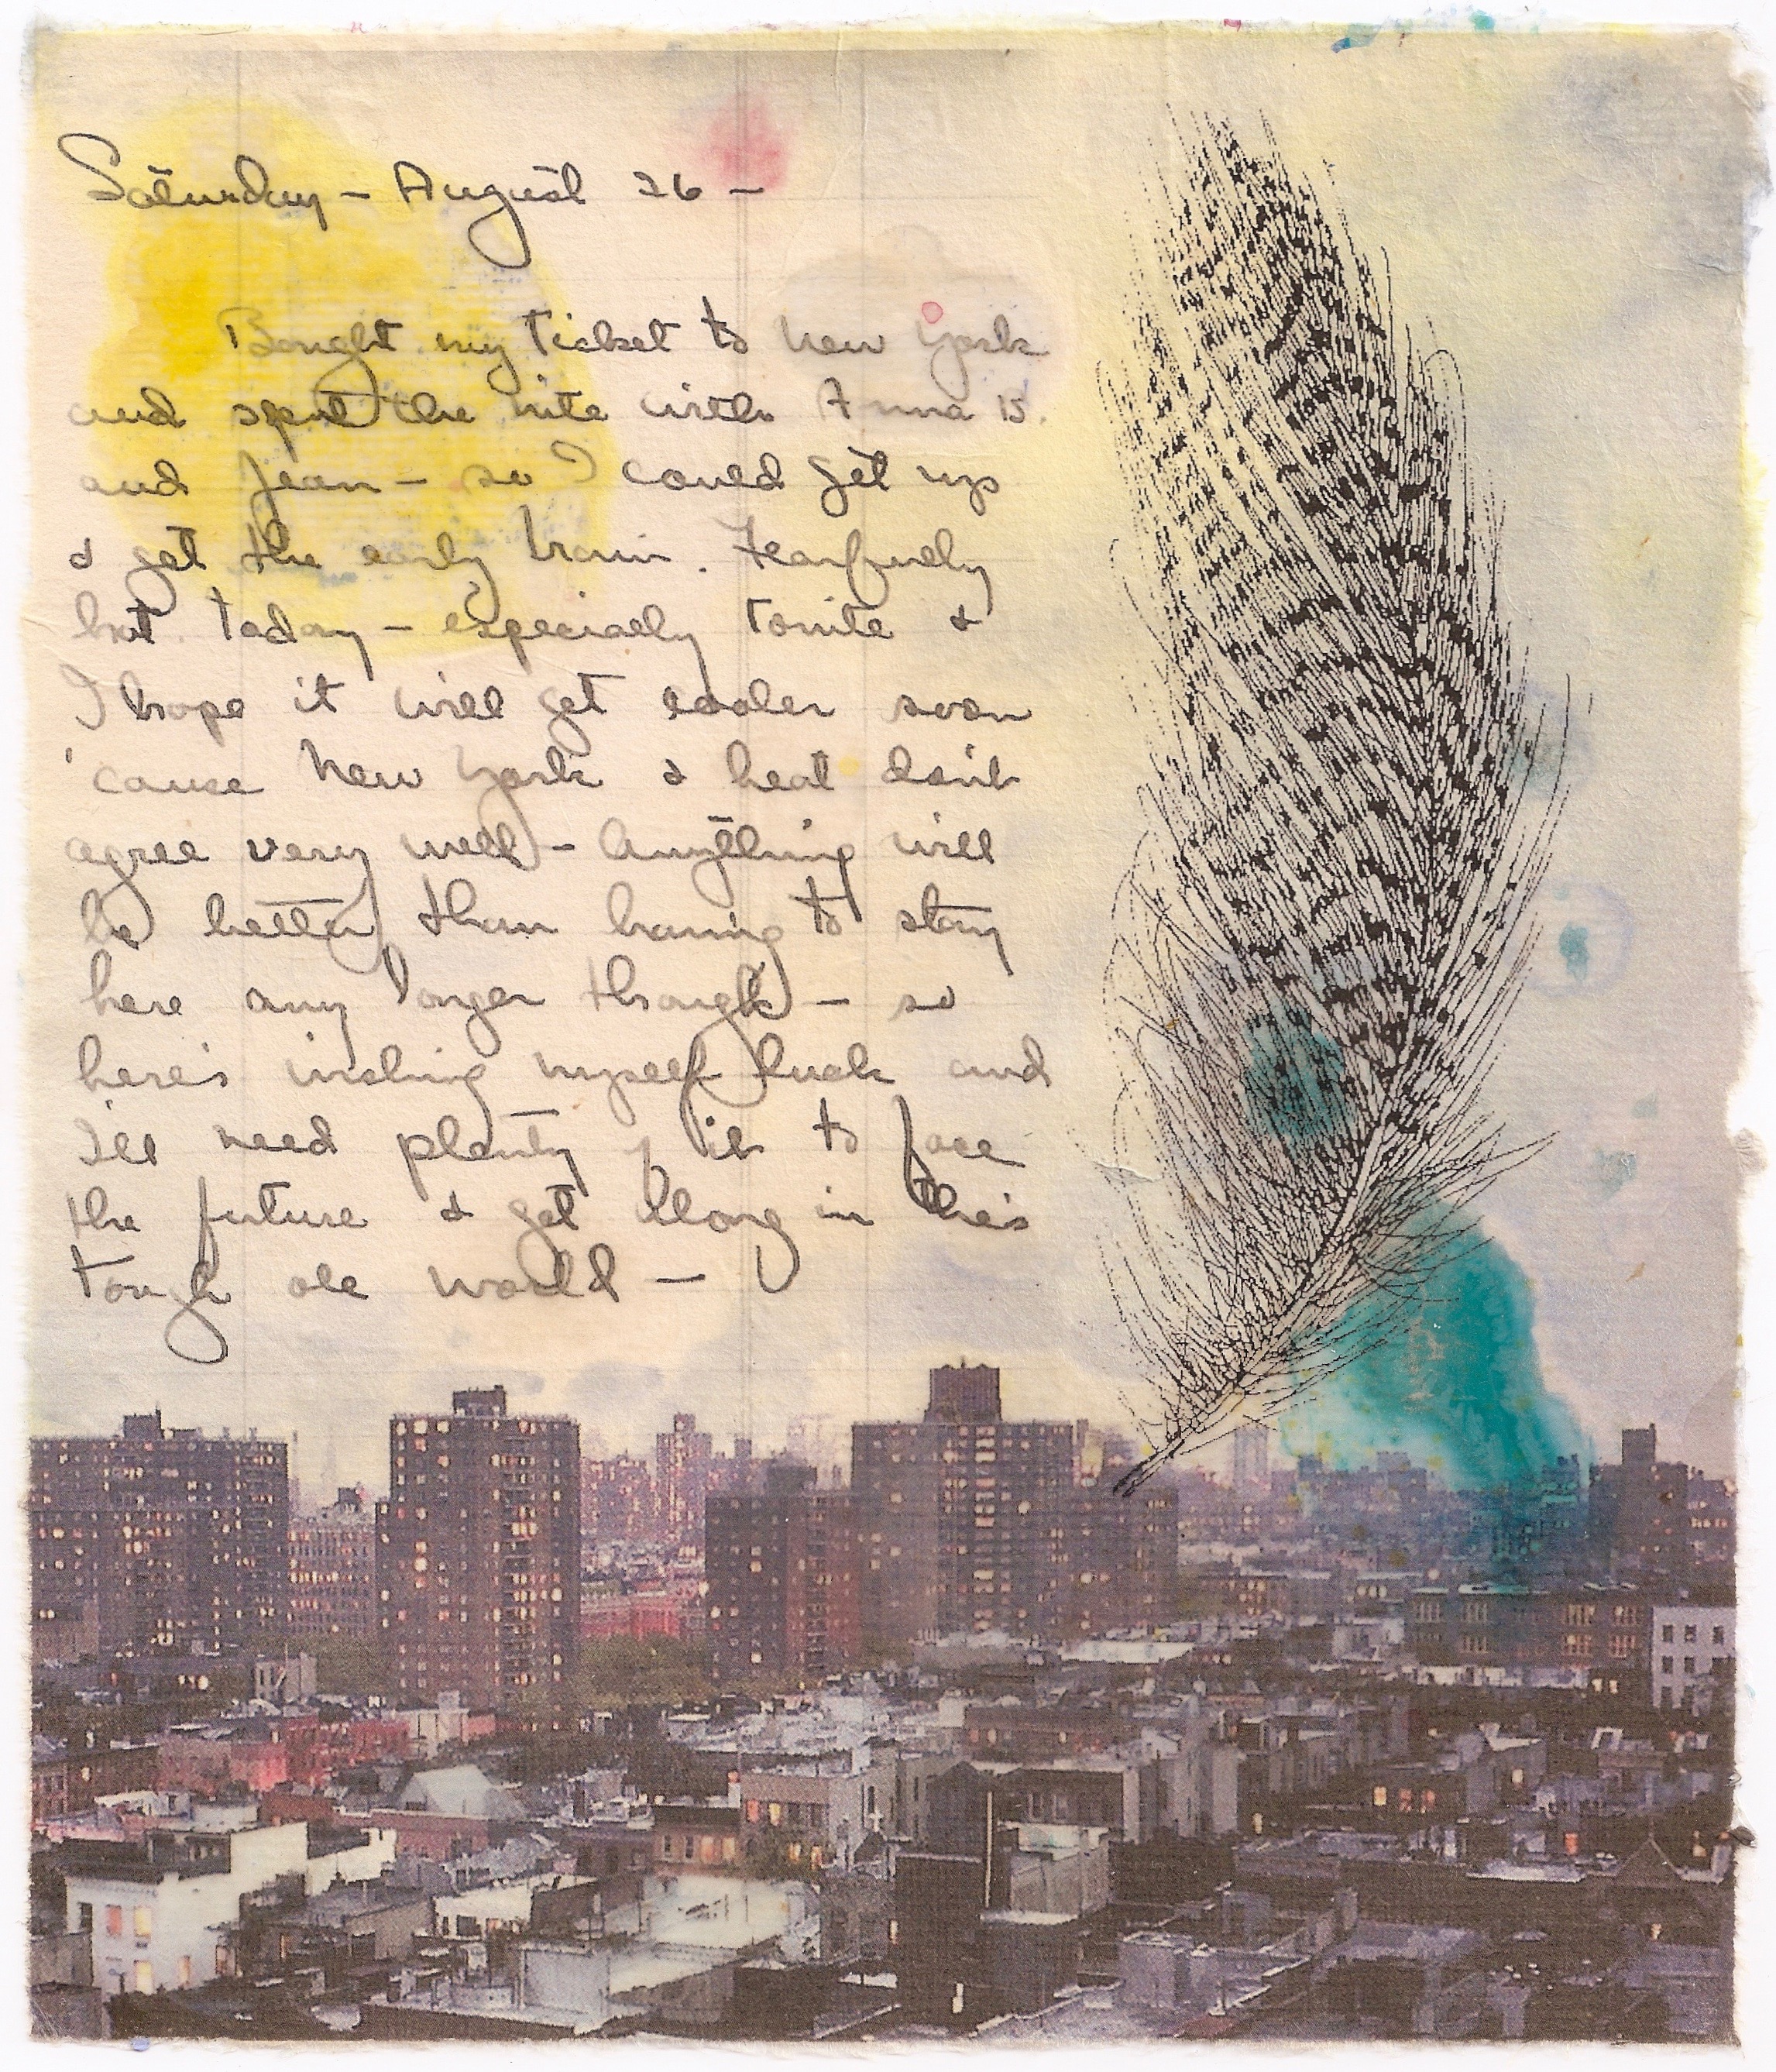 Saturday – August 26 –
Bought my ticket to New York
and spent the nite with Anna B.
and Jean – so I could get up
& get the early train. Fearfully
hot today – especially tonite &
I hope it will get cooler soon
'cause New York & heat don't
agree very well – Anything will
be better than having to stay
here any longer though – so
here's wishing myself luck and
I'll need plenty of it to face
the future & get along in this
tough ole world –